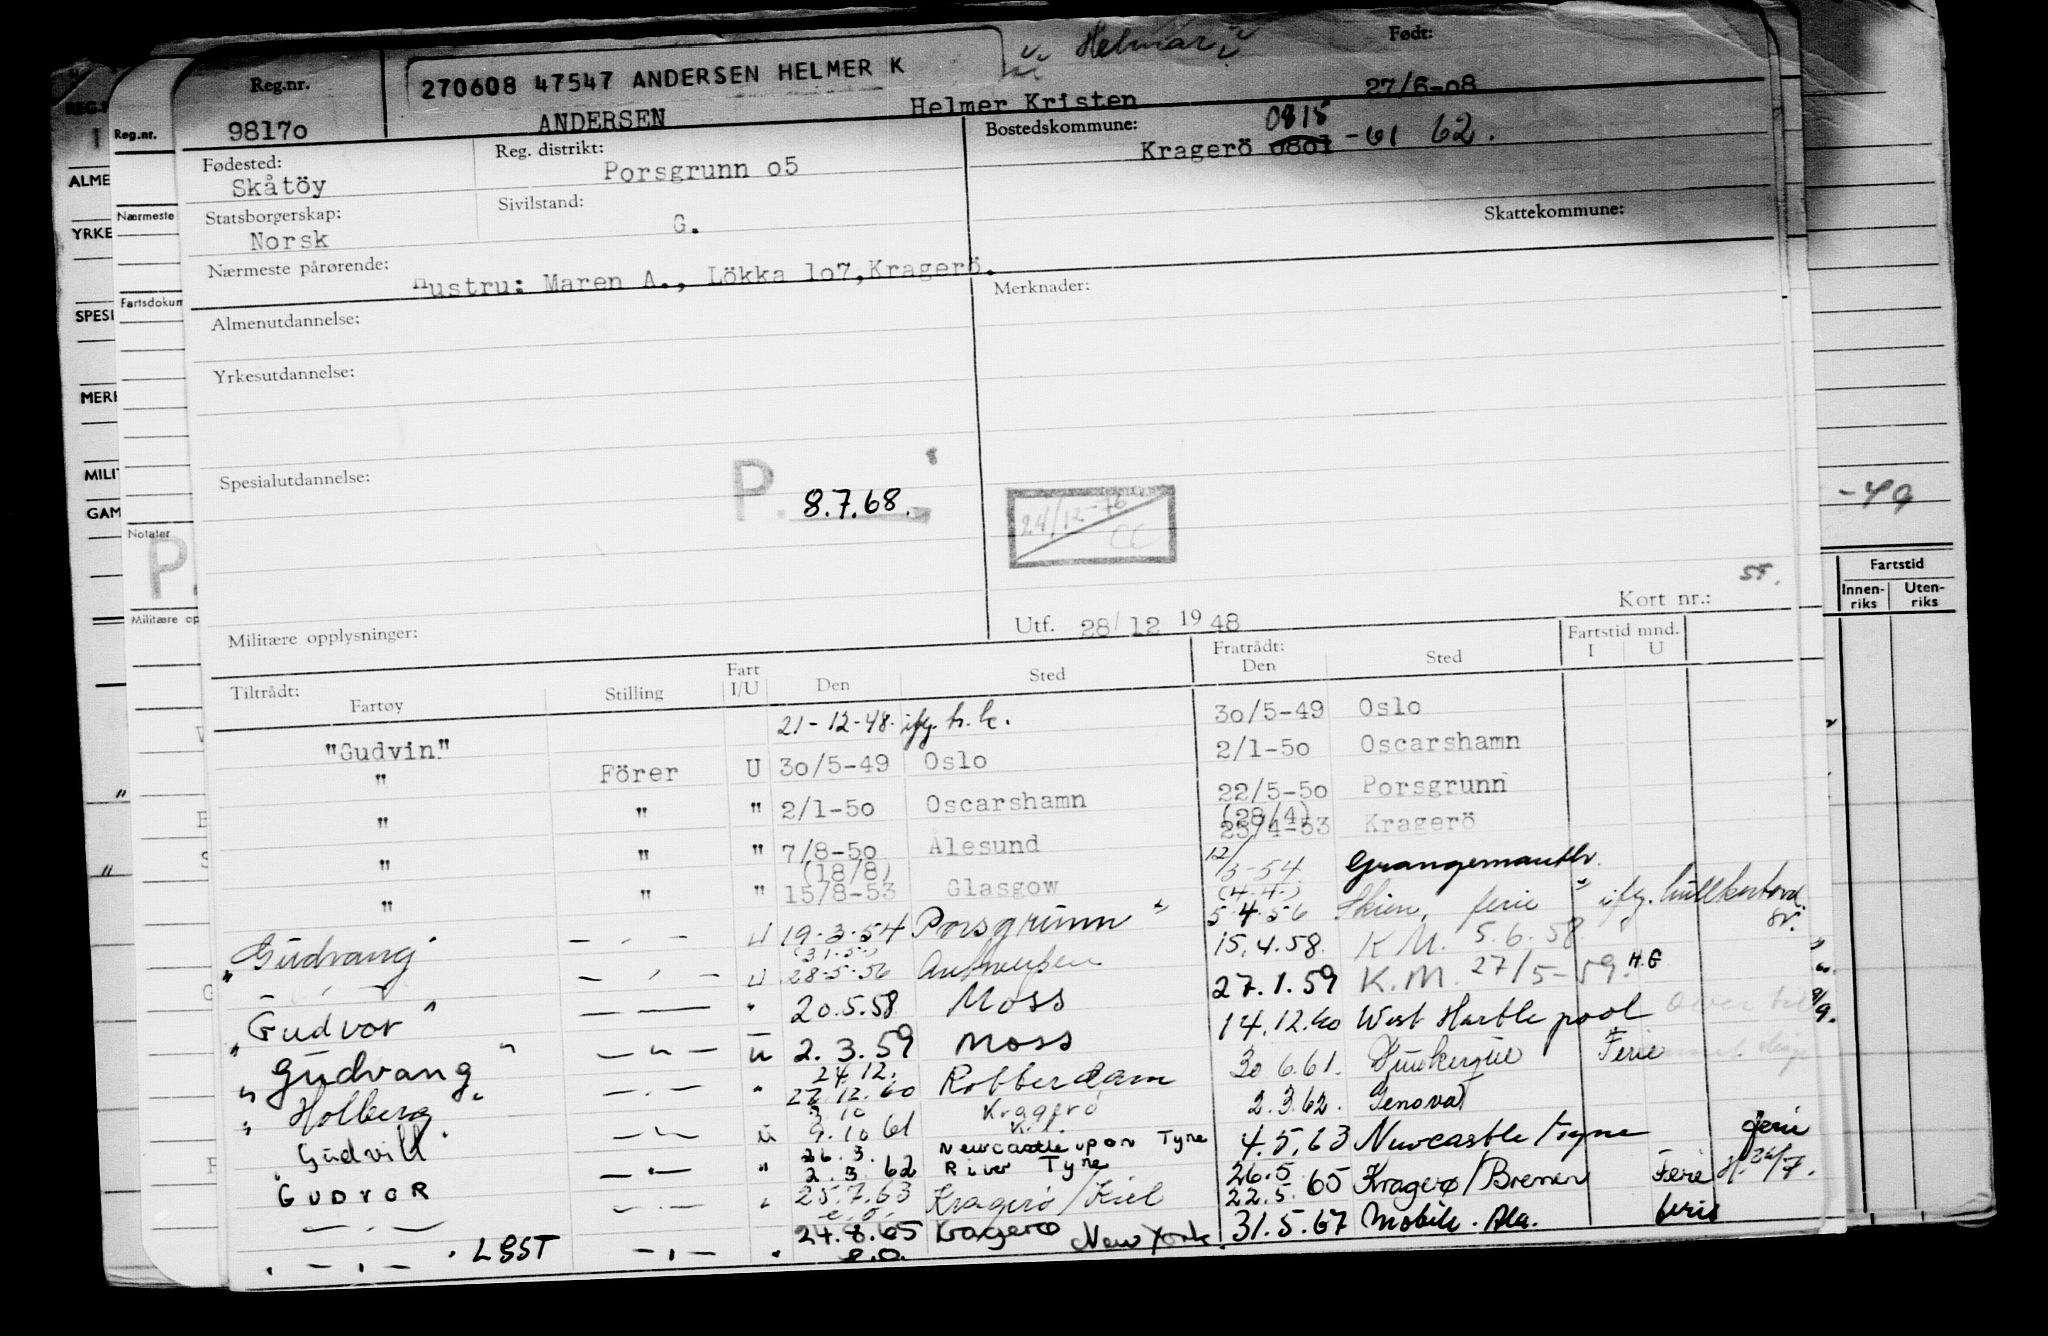 Helmar
Født:
Reg.nr.
270608 47547 ANDERSEN HELMER K
27/6-08
98170
ANDERSEN
Helmer Kristen
Bostedskommune:
0815
Kragerö 0801 -61 62.
Fødested:
Skåtöy
Reg. distrikt:
Porsgrunn o5
Statsborgerskap:
Norsk
Sivilstand:
G.
Skattekommune:
Nærmeste pårørende:
Hustru: Maren A., Lökka lo7, Kragerö.
Merknader:
Almenutdannelse:
Yrkesutdannelse:
Spesialutdannelse:
P. 8.7.68.
24/12-76
CC
Militære opplysninger:
Utf. 28/12 1948
Kort nr.:
Tiltrådt:
Fartøy
Stilling
Fart I/U
Den
Sted
Fratrådt:
Den
Sted
Fartstid mnd.
I U
21-12-48. ifg. h.k. 30/5-49 Oslo
"Gudvin"
" Förer U 30/5-49 Oslo 2/1-50 Oscarshamn
" " " 2/1-50 Oscarshamn 22/5-50 Porsgrunn
(28/4)
" " " 7/8-50 Ålesund 25/4-53 Kragerö
(18/8)
" " " 15/8-53 Glasgow 12/3-54 Grangemouth
(4.4.)
"Gudvang" — " — U 19.3.54 Porsgrunn 5.4.56 Skien, ferie ifg. hullkortord.
— " — — " — U 28.5.56 Antwerpen 15.4.58. K.M. 5.6.58
"Gudvor" — — " 20.5.58 Moss 27.1.59 K.M. 27/5-59. H.G
"Gudvang" — " — U 2.3.59 Moss 14.12.60 West Hartlepool
24.12.
"Holberg" — " — " 22.12.60 Rotterdam 30.6.61. Djunkerque Ferie
3.10 Kragerö
"Gudvill" — " — U 9.10.61 2.3.62. Genova
26.3. Newcastle upon Tyne
"GUDVOR — " — " 2.3.62 River Tyne 4.5.63 Newcastle/Tyne ferie
26.5
— " — — " — " 25.7.63 Kragerø/Kiel 22.5.65 Kragerø/Bremen Ferie
" — " — . LGST — " — " 24.8.65 Kragerø New York. 31.5.67 Mobile. Ala. ferie
e.o.
REG.
Reg.nr.
ALME
Nærmeste
YRKE
Fartsdokum
SPESI
MERK
MILIT
GAM
Notater
P.
Militære op
-49
Fartstid
Innen-riks
Uten-riks